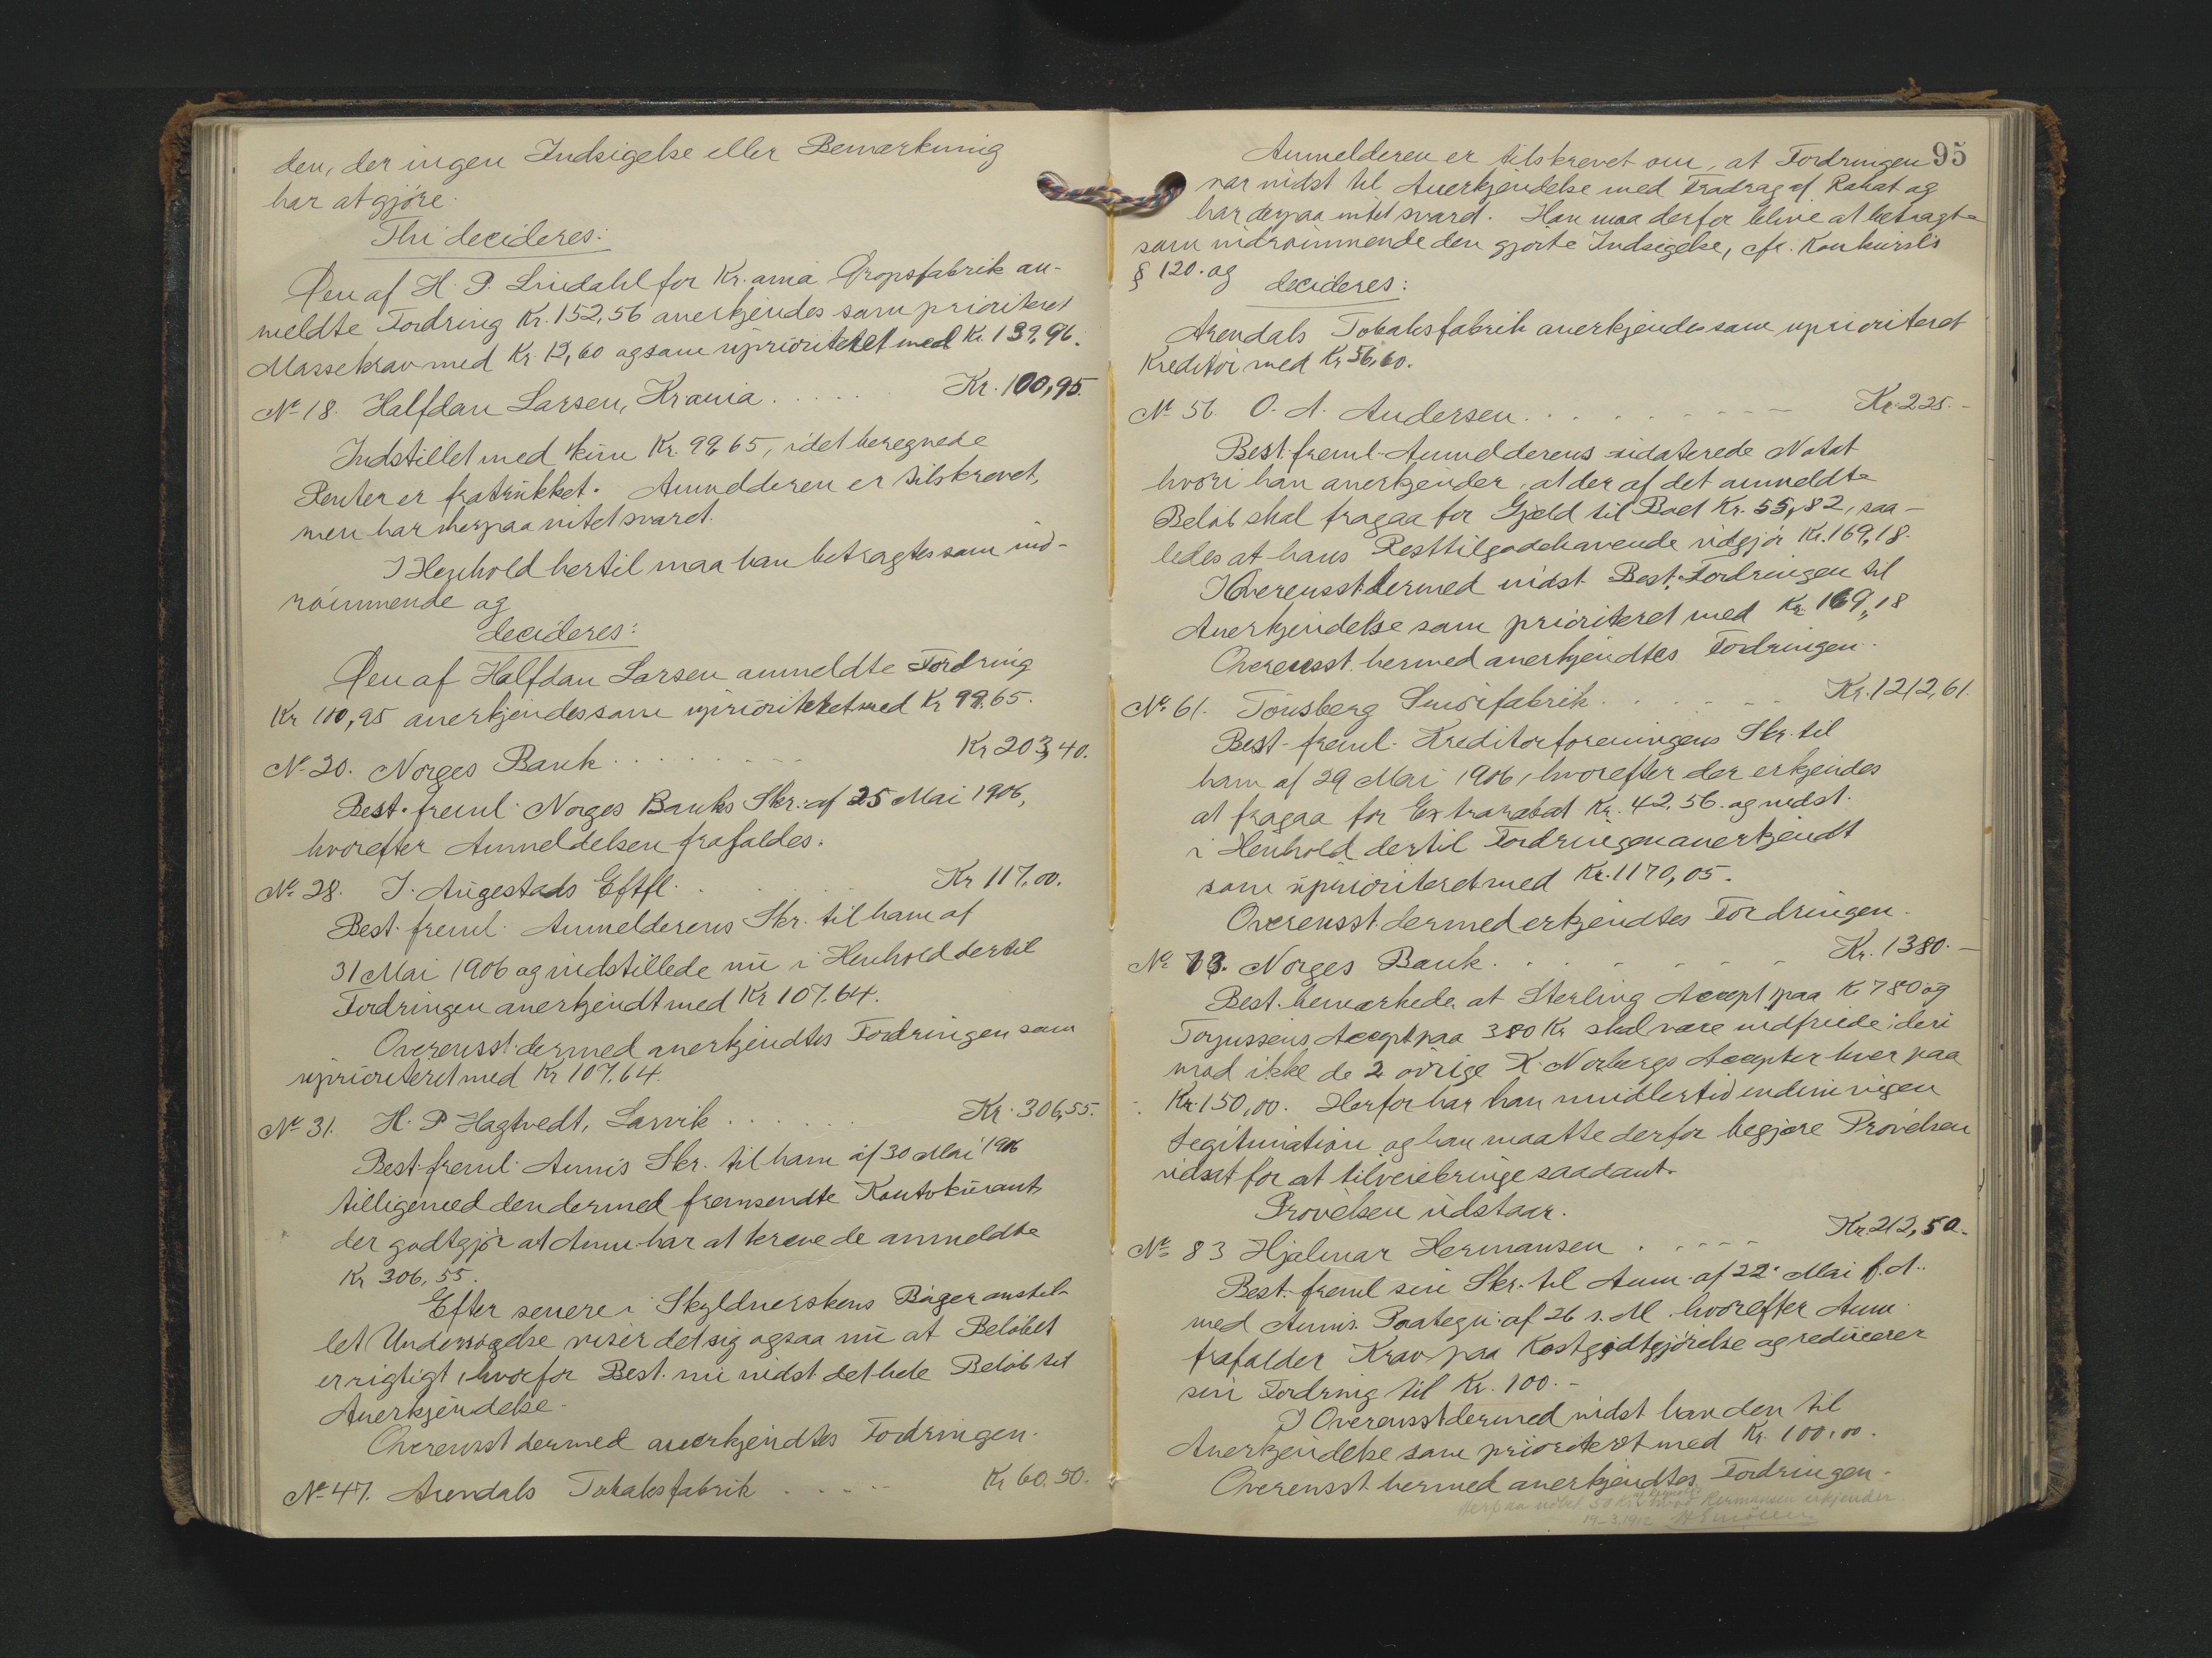 den, der ingen Indsigelse eller Bemærkning
har at gjøre.
Thi decideres:
Den af H. P. Lindahl for Kr.ania Dropsfabrik an-
meldte Fordring Kr. 152,56 anerkjendes som prioriteret
Massekrav med Kr. 12,60 og som uprioriteret med Kr. 139,96.
No 18. Halfdan Larsen, Krania . . . . . Kr. 100,95.
Indstillet med kun Kr. 99,65, idet beregnede
Renter er fratrukket. Anmelderen er tilskrevet,
men har herpaa intet svaret.
I Henhold hertil maa han betragtes som ind-
rømmende og
decideres:
Den af Halfdan Larsen anmeldte Fordring
Kr 100,95 anerkjendes som uprioriteret med Kr 99,65.
No 20. Norges Bank . . . . . . . Kr 203,40.
Best. freml. Norges Banks Skr. af 25 Mai 1906,
hvorefter Anmeldelsen frafaldes.
No 28. J. Augestads Eftfl. . . . . . Kr 117,00.
Best. freml. Anmelderens Skr. til ham af
31 Mai 1906 og indstillede nu i Henhold dertil
Fordringen anerkjendt med Kr 107.64.
Overensst. dermed anerkjendtes Fordringen som
uprioriteret med Kr 107.64.
No 31. H. P Hagtvedt, Larvik . . . . . . Kr. 306,55.
Best. freml. Anm's Skr. til ham af 30 Mai 1906
tilligemed den dermed fremsendte Kontokurant,
der godtgjør at Anm. har at kræve de anmeldte
Kr 306,55.
Efter senere i Skyldnerskens Bøger anstil-
let Undersøgelse viser det sig ogsaa nu at Beløbet
er rigtigt, hvorfor Best. nu indst. det hele Beløb til
Anerkjendelse.
Overensst dermed anerkjendtes Fordringen.
No 47. Arendals Tobaksfabrik . . . . . Kr 60.50.
95
Anmelderen er tilskrevet om, at Fordringen
var indst til Anerkjendelse med Fradrag af Rabat og
har derpaa intet svaret. Han maa derfor blive at betragte
som indrømmende den gjorte Indsigelse, cfr. Konkursl's
§ 120. og decideres:
Arendals Tobaksfabrik anerkjendes som uprioriteret
Kreditor med Kr. 56,60.
No 56. O. A. Andersen . . . . . . . . . Kr. 225.-
Best. freml. Anmelderens udaterede Notat
hvori han anerkjender, at der af det anmeldte
Beløb skal fragaa for Gjæld til Boet Kr. 55,82, saa-
ledes at hans Resttilgodehavende udgjør Kr. 169,18.
I Overensst. dermed indst. Best. Fordringen til
Anerkjendelse som prioriteret med Kr. 169,18
Overensst. hermed anerkjendtes Fordringen.
No 61. Tønsberg Smørfabrik . . . . . . Kr. 1212,61.
Best. freml. Kreditorforeningens Skr. til
ham af 29 Mai 1906, hvorefter der erkjendes
at fragaa for Extrarabat Kr. 42.56. og indst.
i Henhold dertil Fordringen anerkjendt
som uprioriteret med Kr. 1170,05.
Overensst. dermed erkjendtes Fordringen.
No 73. Norges Bank . . . . . . . Kr. 1380.-
Best. bemærkede at Sterling Accept paa Kr 780 og
Torgussens Accept paa 300 Kr skal være indfriede; deri
mod ikke de 2 øvrige K. Norbergs Accepter hver paa
Kr. 150,00. Herfor har han imidlertid endnu ingen
Legitimation og han maatte derfor begjære Prøvelsen
udsat for at tilveiebringe saadant.
Prøvelsen udstaar.
No 83 Hjalmar Hermansen . . . . . Kr. 212,50.
Best. freml sin Skr. til Anm. af 22. Mai f. A..
med Anm's Paategn. af 26 s. M. hvorefter Anm.
frafalder Krav paa Kostgodtgjørelse og reducerer
sin Fordring til Kr. 100.-
I Overensst dermed indst han den til
Anerkjendelse som prioriteret med Kr. 100,00.
Overensst. hermed anerkjendtes Fordringen.
Herpaa 50 Kr. Hermansen erkjender.
19-3.1912